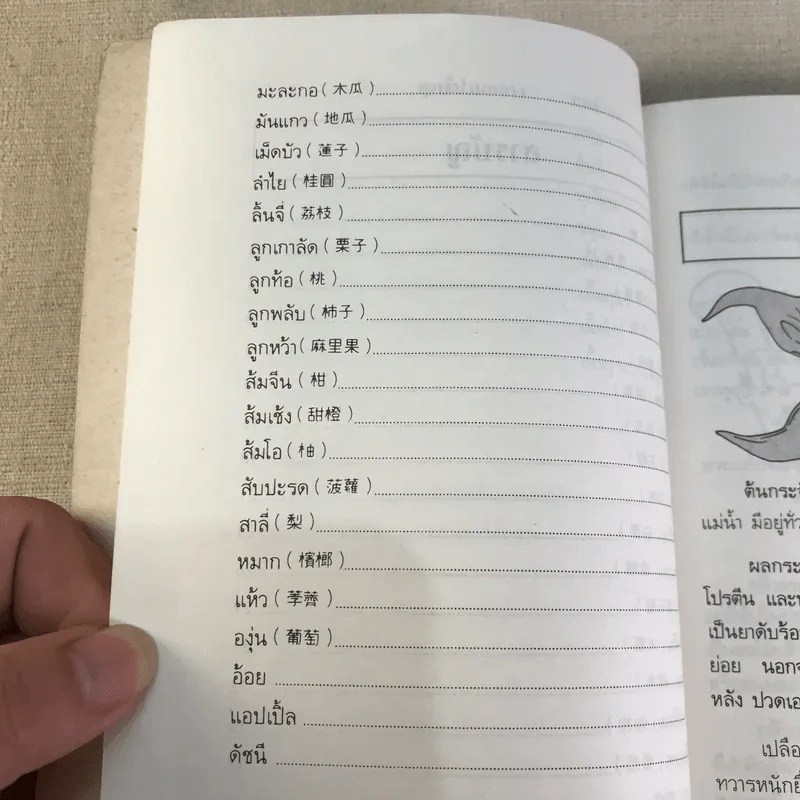 มะละกอ ( 木瓜 )
มันแกว ( 地瓜 )
เม็ดบัว ( 蓮子 )
ลำไย ( 桂圓 )
ลิ้นจี่ ( 荔枝 )
ลูกเกาลัด ( 栗子 )
ลูกท้อ ( 桃 )
ลูกพลับ ( 柿子 )
ลูกหว้า ( 麻里果 )
ส้มจีน ( 柑 )
ส้มเช้ง ( 甜橙 )
ส้มโอ ( 柚 )
สับปะรด ( 菠蘿 )
สาลี่ ( 梨 )
หมาก ( 檳榔 )
แห้ว ( 荸薺 )
องุ่น ( 葡萄 )
อ้อย
แอปเปิ้ล
ดัชนี
ต้นกระจั
แม่น้ำ มีอยู่ทั่ว
ผลกระ
โปรตีน และ
เป็นยาดับร้อ
ย่อย นอกจ
หลัง ปวดเอ
เปลือ
ทวารหนักยื่